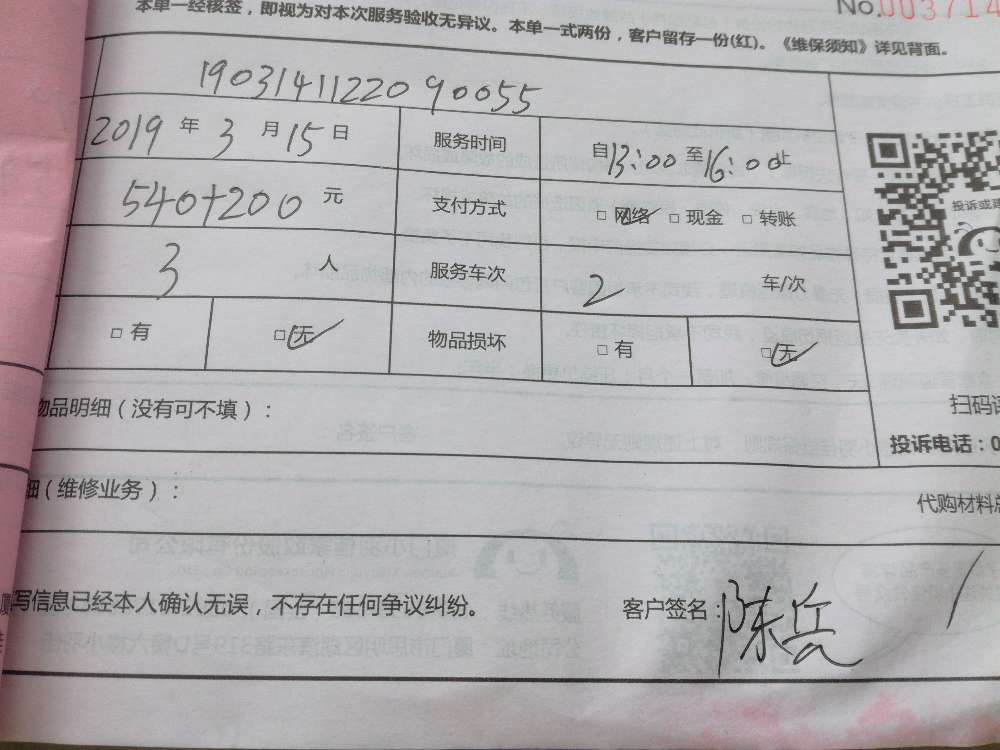 本单一经核签，即视为对本次服务验收无异议。本单一式两份，客户留存一份(红)。《维保须知》详见背面。
No.003714
19031411220 90055
2019 年 3 月 15 日 服务时间 自 13:00 至 16:00 止
540+200 元 支付方式 □ 网络 □ 现金 □ 转账
3 人 服务车次 2 车/次
□ 有 □ 无 物品损坏 □ 有 □ 无
投诉或建
扫码
物品明细（没有可不填）：
投诉电话：0
细（维修业务）：
代购材料总
写信息已经本人确认无误，不存在任何争议纠纷。 客户签名：陈兵